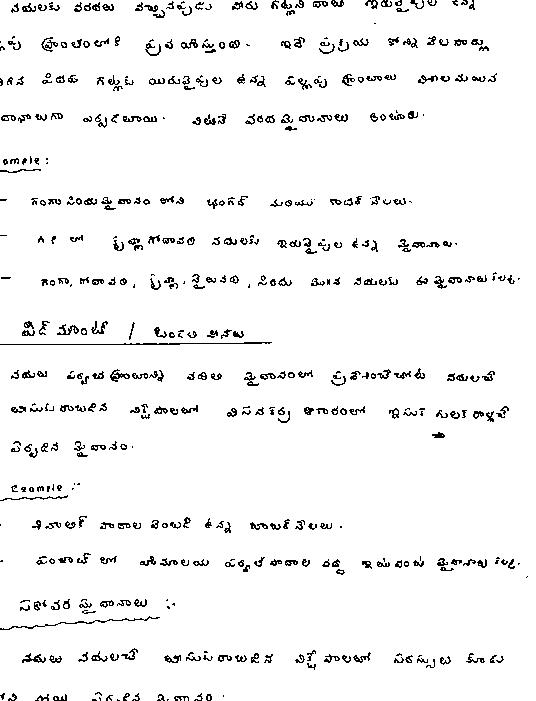 నదులకు వరదలు వచ్చినప్పుడు నీరు గట్లుని దాటి ఇరువైపుల ఉన్న
ప్రాంతంలోకి ప్రవహిస్తుంది. ఇదే ప్రక్రియ కొన్ని వేల సార్లు
పిదప గట్లుకు యిరువైపుల ఉన్న పల్లపు ప్రాంతాలు విశాలమయిన
ఏర్పడతాయి. వీటినే వరద మైదానాలు అంటారు.
ample:
- గంగా సింధు మైదానం లోని భంగర్ మరియు ఖాదర్ నేలలు.
- A.P లో కృష్ణా గోదావరి నదులకు ఇరువైపుల ఉన్న మైదానాలు.
- గంగా, గోదావరి, కృష్ణా, నైలునది, సింధు మొగన నదులకు ఈ మైదానాలు కలవు.
పీడ్ మాంట్ /
నదులు పర్వత ప్రాంతాన్ని వదిలి మైదానంలో ప్రవేశించేచోట నదులచే
తీసుకురాబడిన నిక్షేపాలతో విసనకర్ర ఆకారంలో ఇసుక గులకరాళ్లచే
ఏర్పడిన మైదానం.
Example:-
- శివాలిక్ పాదాల వెంబడి ఉన్న బాబర్ నేలలు.
- పంజాబ్ లో హిమాలయ పర్వత పాదాల వద్ద ఇటువంటి మైదానాలు కలవు.
సరోవర మైదానాలు :-
నదులు నదులచే తీసుకురాబడిన నిక్షేపాలతో సరస్సులు పూడు
కొని పోయి ఏర్పడిన మైదానం.